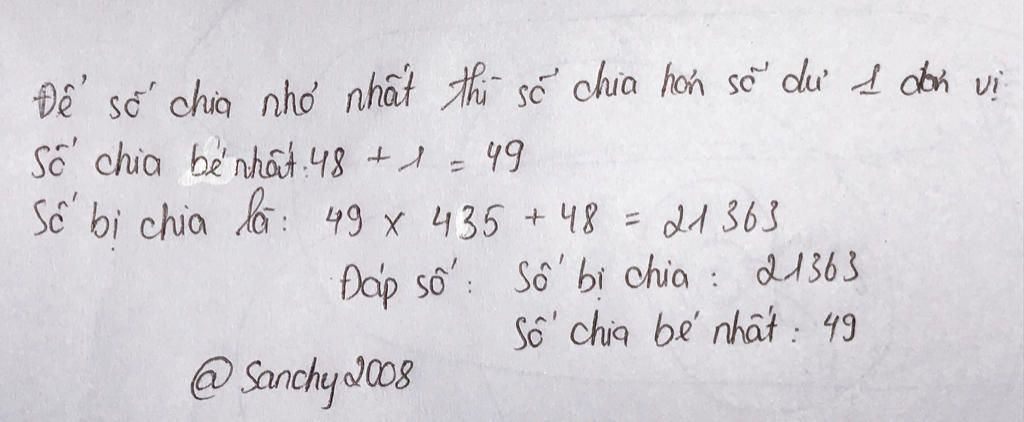 Để số chia nhỏ nhất thì số chia hơn số dư 1 đơn vị
Số chia bé nhất: 48 + 1 = 49
Số bị chia là: 49 x 435 + 48 = 21363
Đáp số: Số bị chia: 21363
Số chia bé nhất: 49
@Sanchy2008